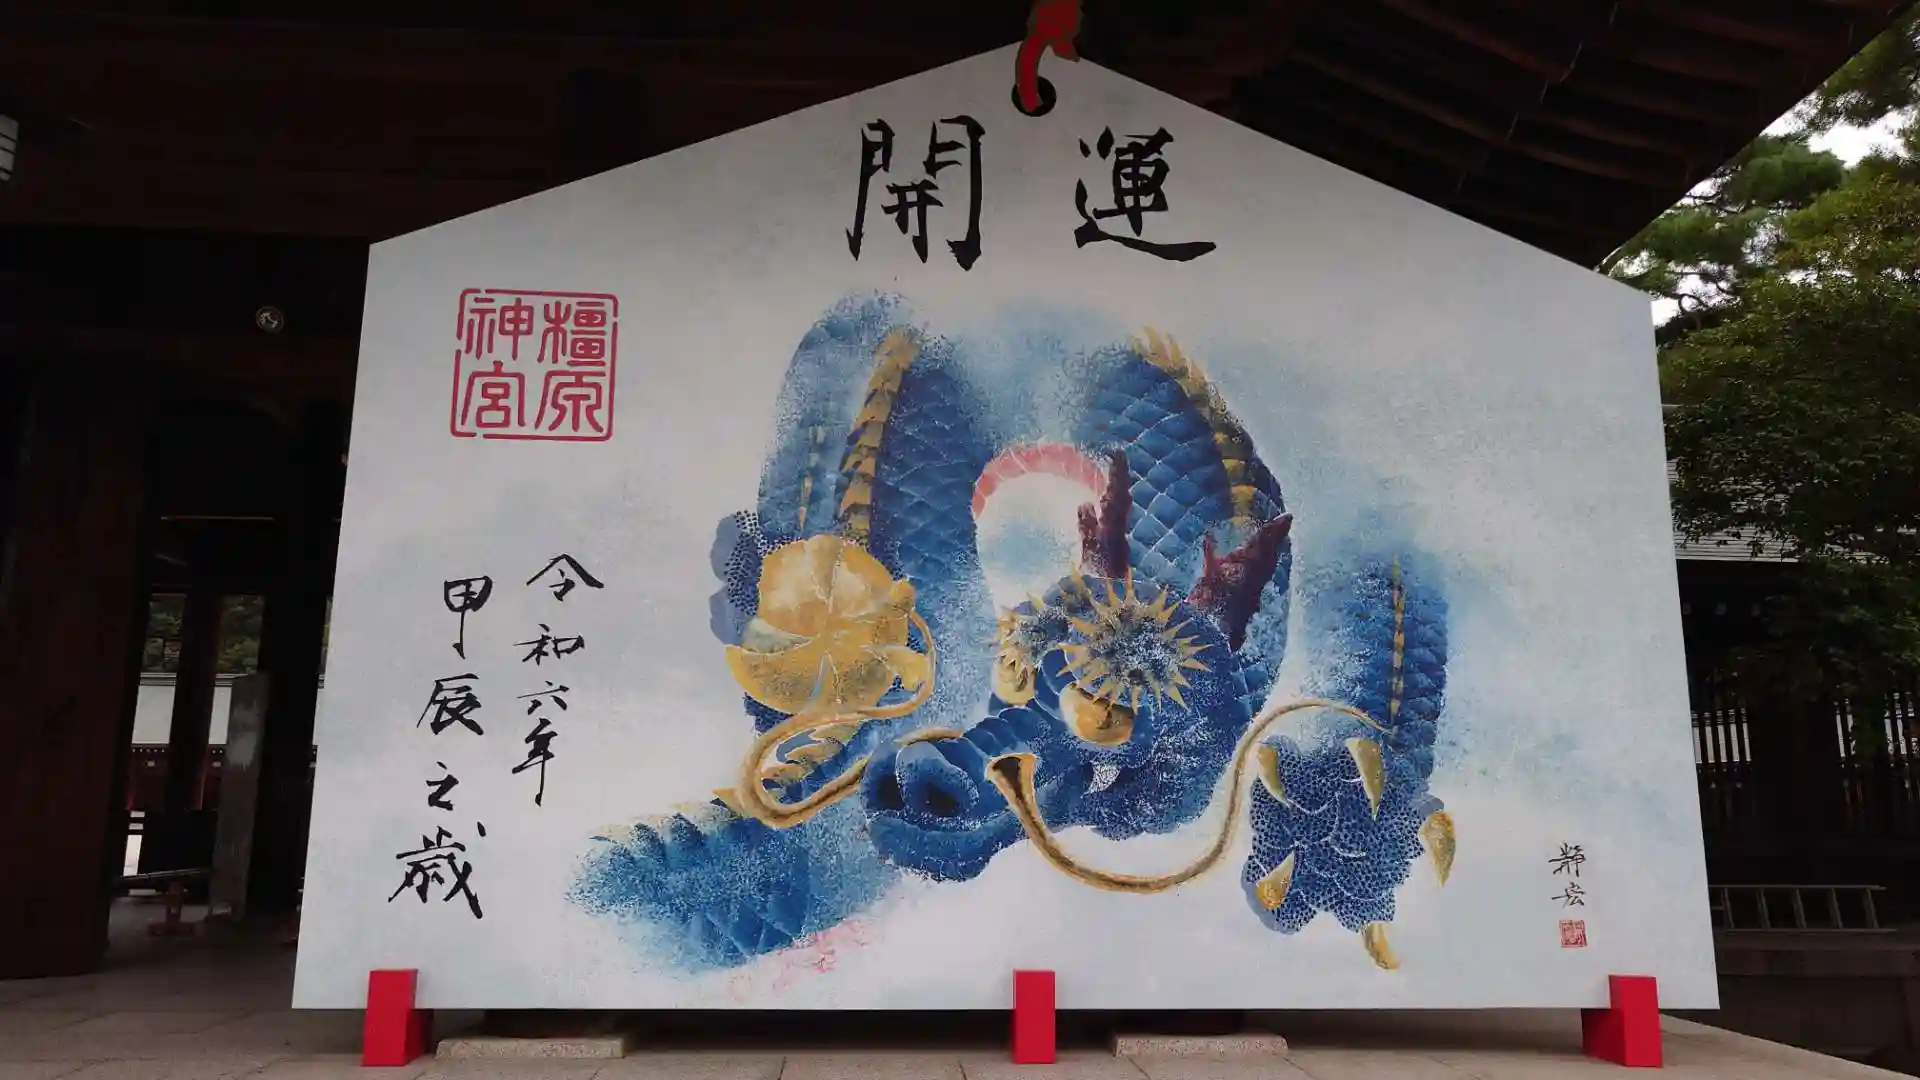 開運
橿原
神宮
令和六年
甲辰之歳
静宏